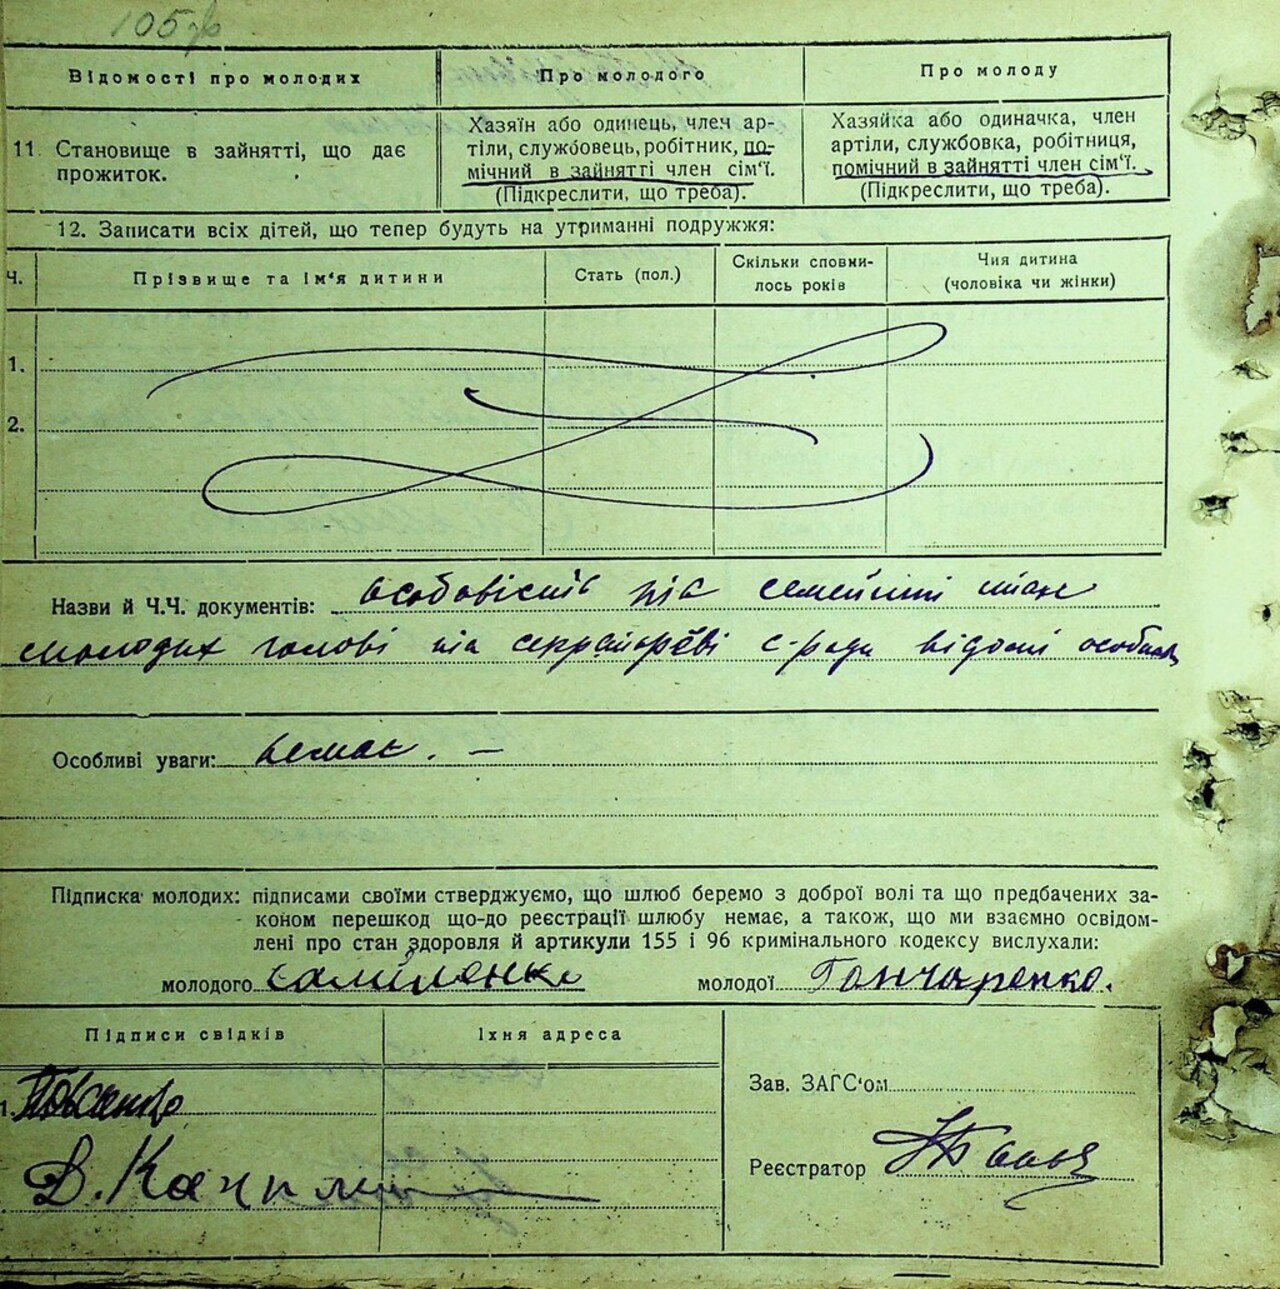 105
Відомості про молодих
Про молодого
Про молоду
11. Становище в зайнятті, що дає
прожиток.
Хазяїн або одинець, член ар-
тіли, службовець, робітник, по-
мічний в зайнятті член сім'ї.
(Підкреслити, що треба).
Хазяйка або одиначка, член
артіли, службовка, робітниця,
помічний в зайнятті член сім'ї.
(Підкреслити, що треба).
12. Записати всіх дітей, що тепер будуть на утриманні подружжя:
Ч.
Прізвище та ім'я дитини
Стать (пол.)
Скільки сповни-
лось років
Чия дитина
(чоловіка чи жінки)
1.
2.
Назви й Ч.Ч. документів: особовість та семейний стан
молодих голові та секретареві с-ради відомі особисто
Особливі уваги: немає. —
Підписка молодих: підписами своїми стверджуємо, що шлюб беремо з доброї волі та що предбачених за-
коном перешкод що-до реєстрації шлюбу немає, а також, що ми взаємно освідом-
лені про стан здоровля й артикули 155 і 96 кримінального кодексу вислухали:
молодого Самійленко молодої Гончаренко.
Підписи свідків
Їхня адреса
1.
Зав. ЗАГС'ом
Реєстратор